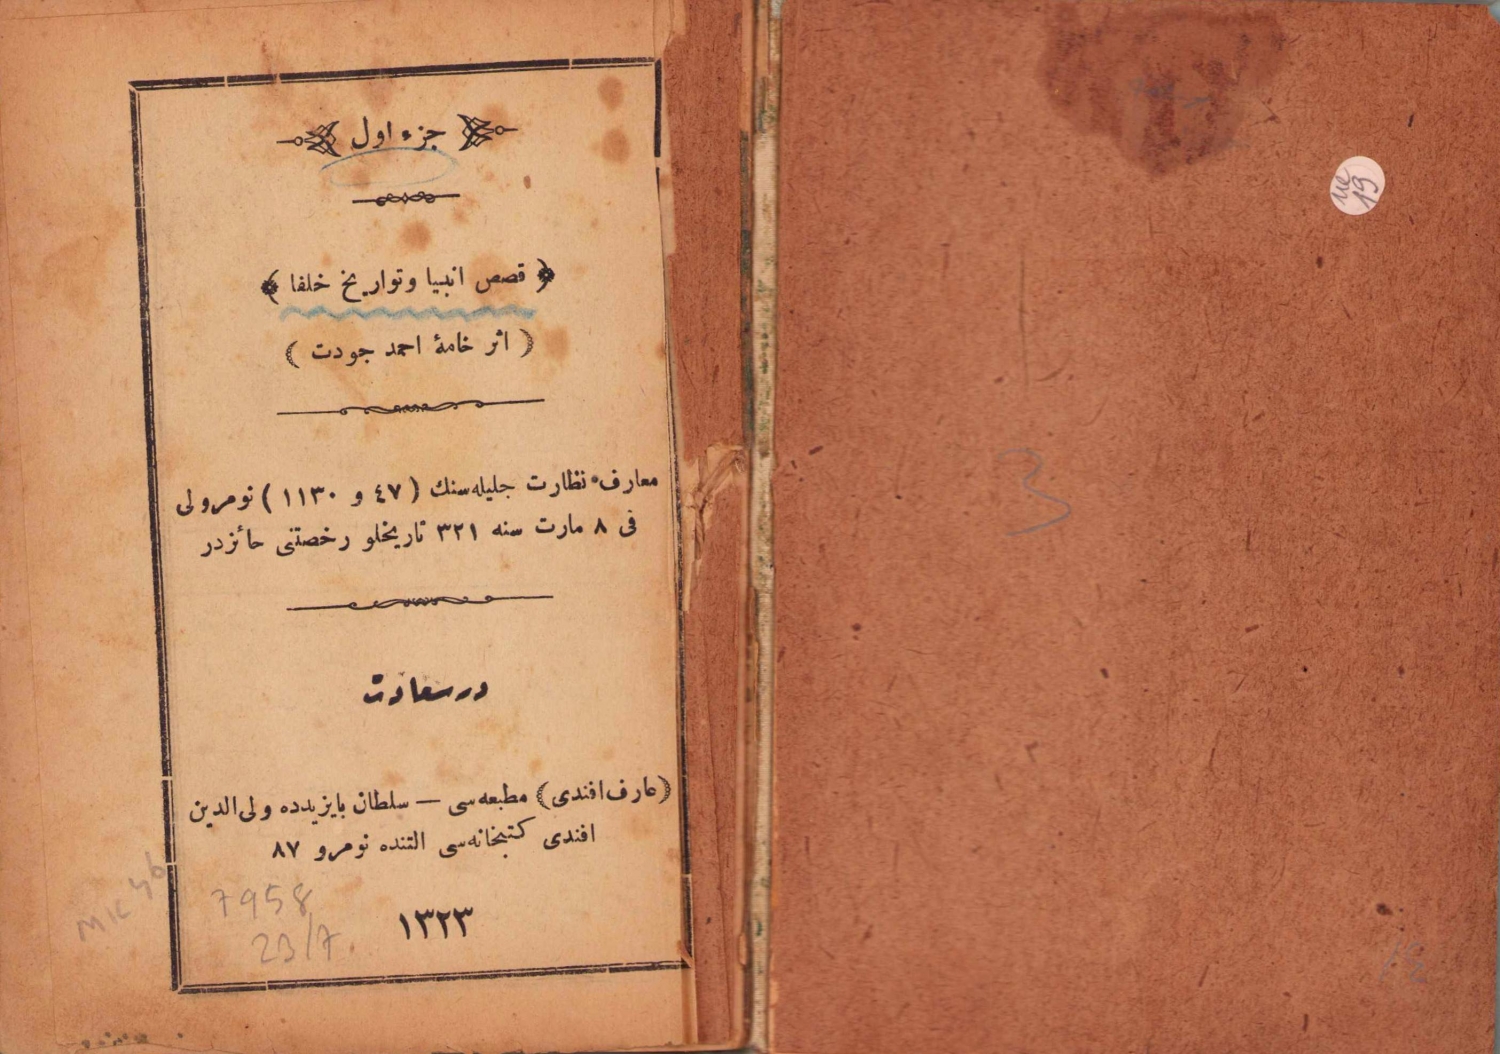 جزء اول
قصص انبیا وتواریخ خلفا
( اثر خامۀ احمد جودت )
معارف نظارت جلیله‌سنك ( ٤٧ و ١١٣٠ ) نومرولی
فی ٨ مارت سنه ٣٢١ تاریخلو رخصتنی حائزدر
درسعادت
(عارف افندی) مطبعه‌سی — سلطان بایزیدده ولی الدین
افندی کتبخانه‌سی التنده نومرو ٨٧
١٣٢٣
7958
23/7
19
3